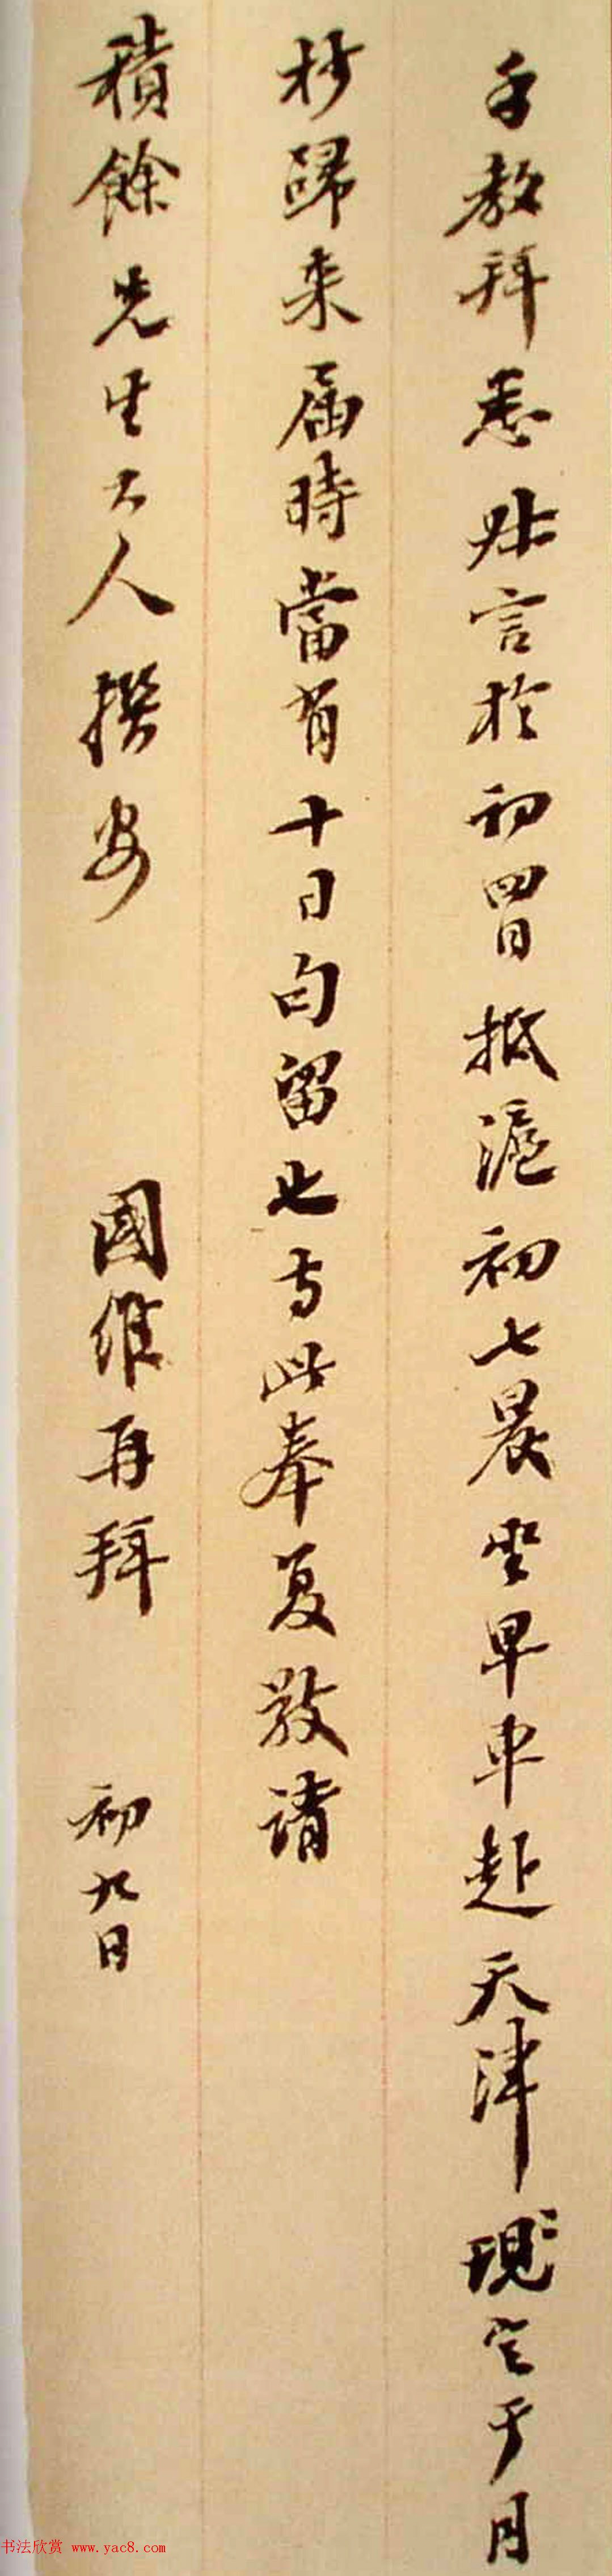 手教拜悉叔言於初四日抵滬初七晨坐早車赴天津現定于月
杪歸來屆時當有十日句留也专此奉复敬請
積餘先生大人撰安 國維再拜 初九日
书法欣赏 www.yac8.com